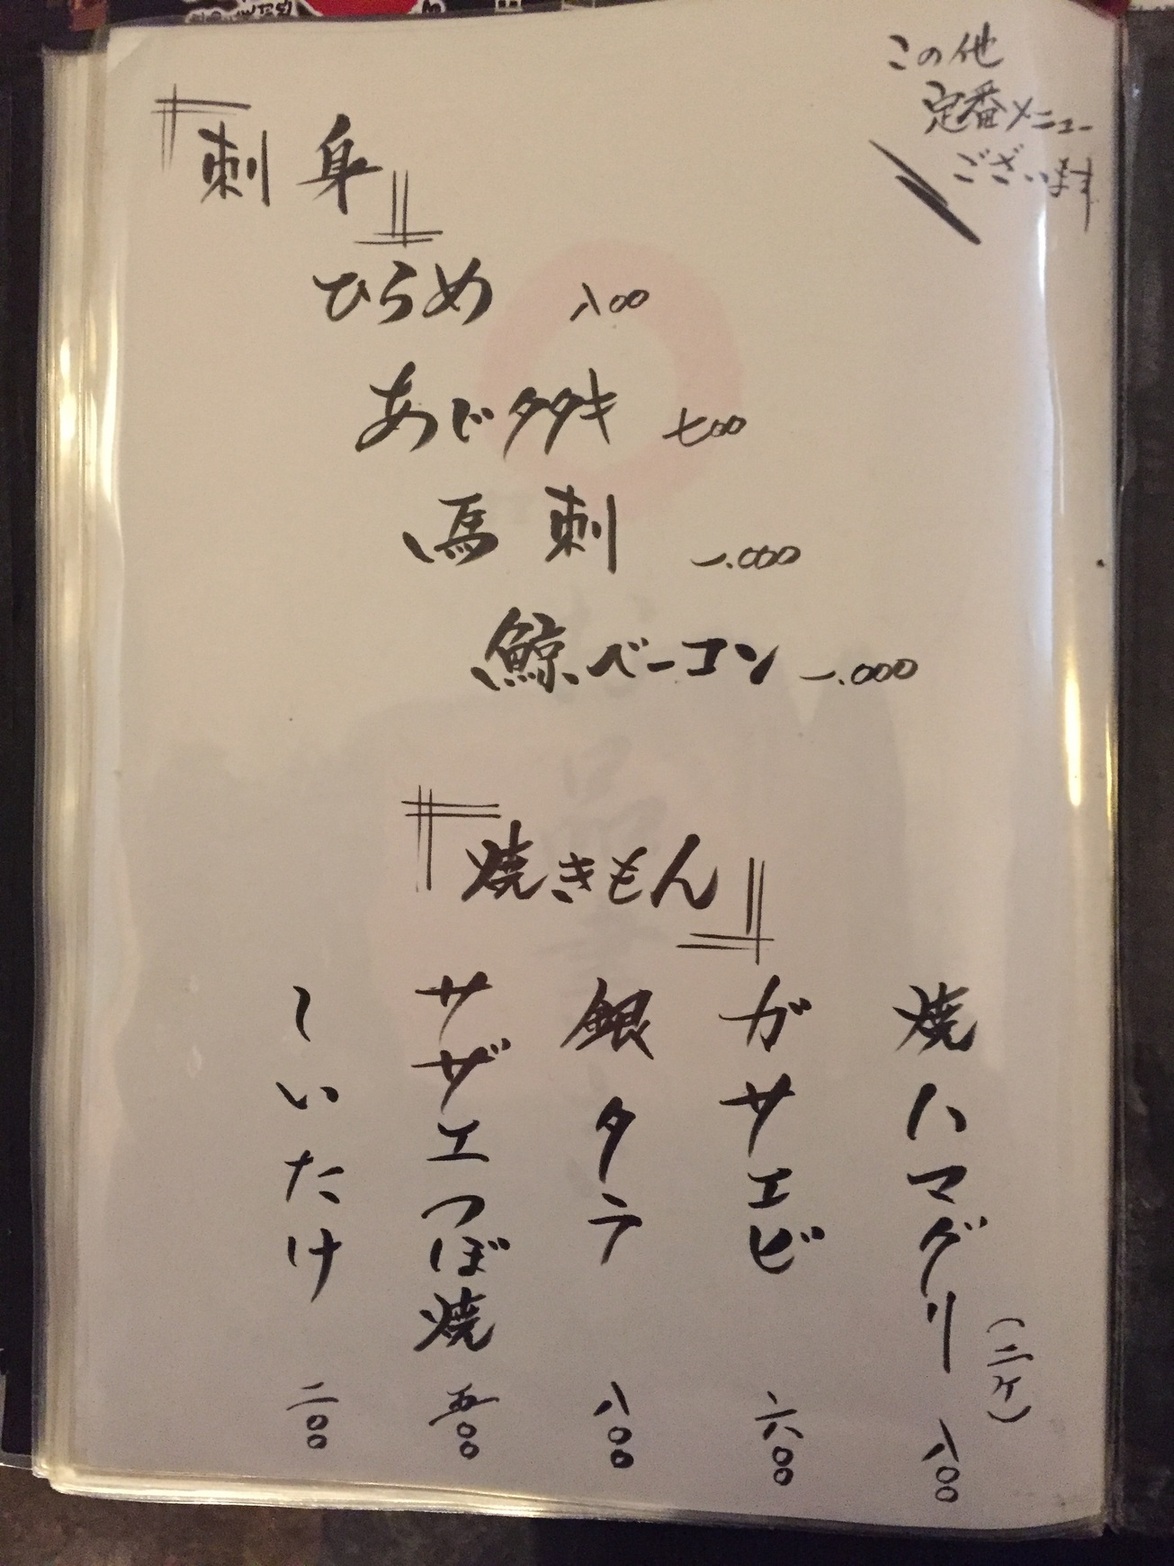 この他
定番メニュー
ございます
『刺身』
ひらめ 八00
あじタタキ 七00
馬刺 一.000
鯨ベーコン 一.000
『焼きもん』
焼ハマグリ(二ケ) 八00
ガサエビ 六00
銀タラ 八00
サザエつぼ焼 五00
しいたけ 二00